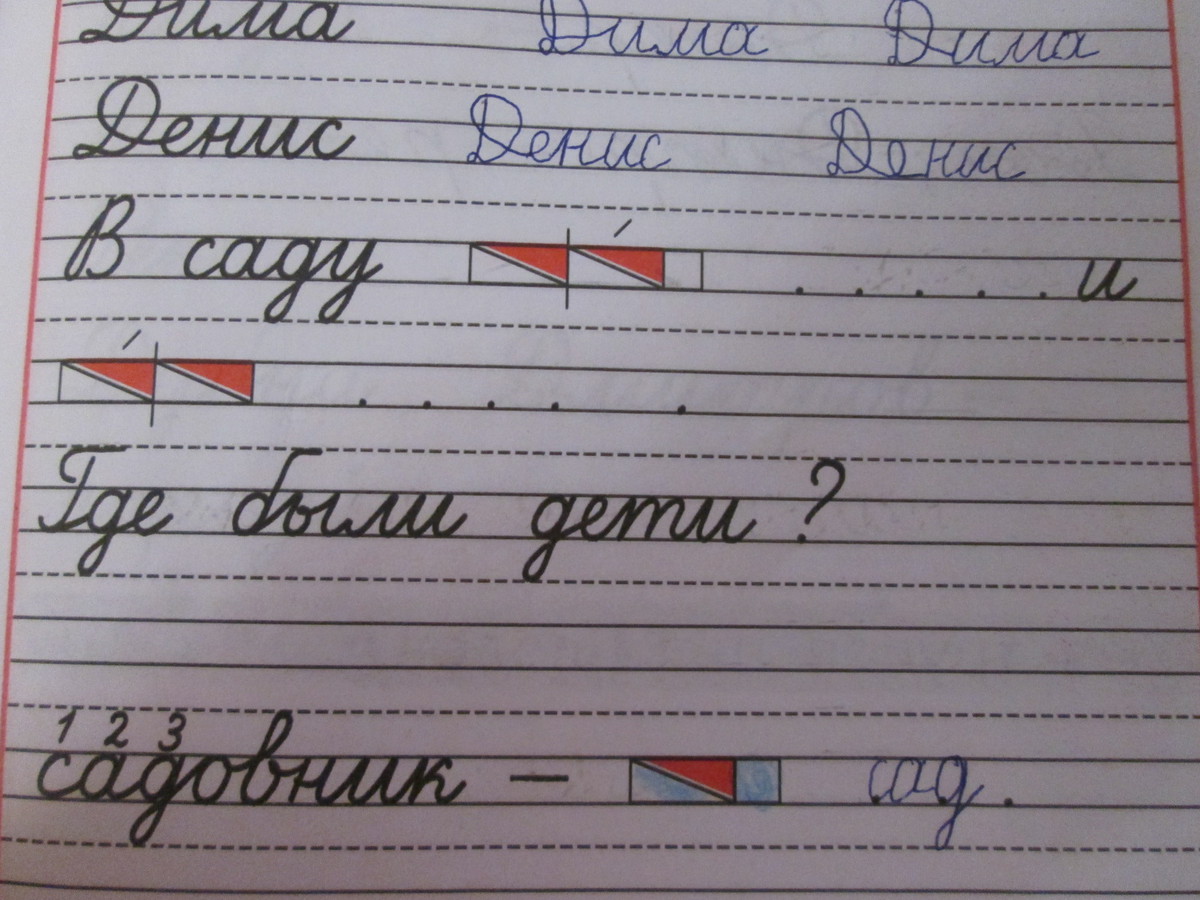 Дима Дима Дима
Денис Денис Денис
В саду . . . . . и
. . . . .
Где были дети ?
1 2 3
садовник — сад .